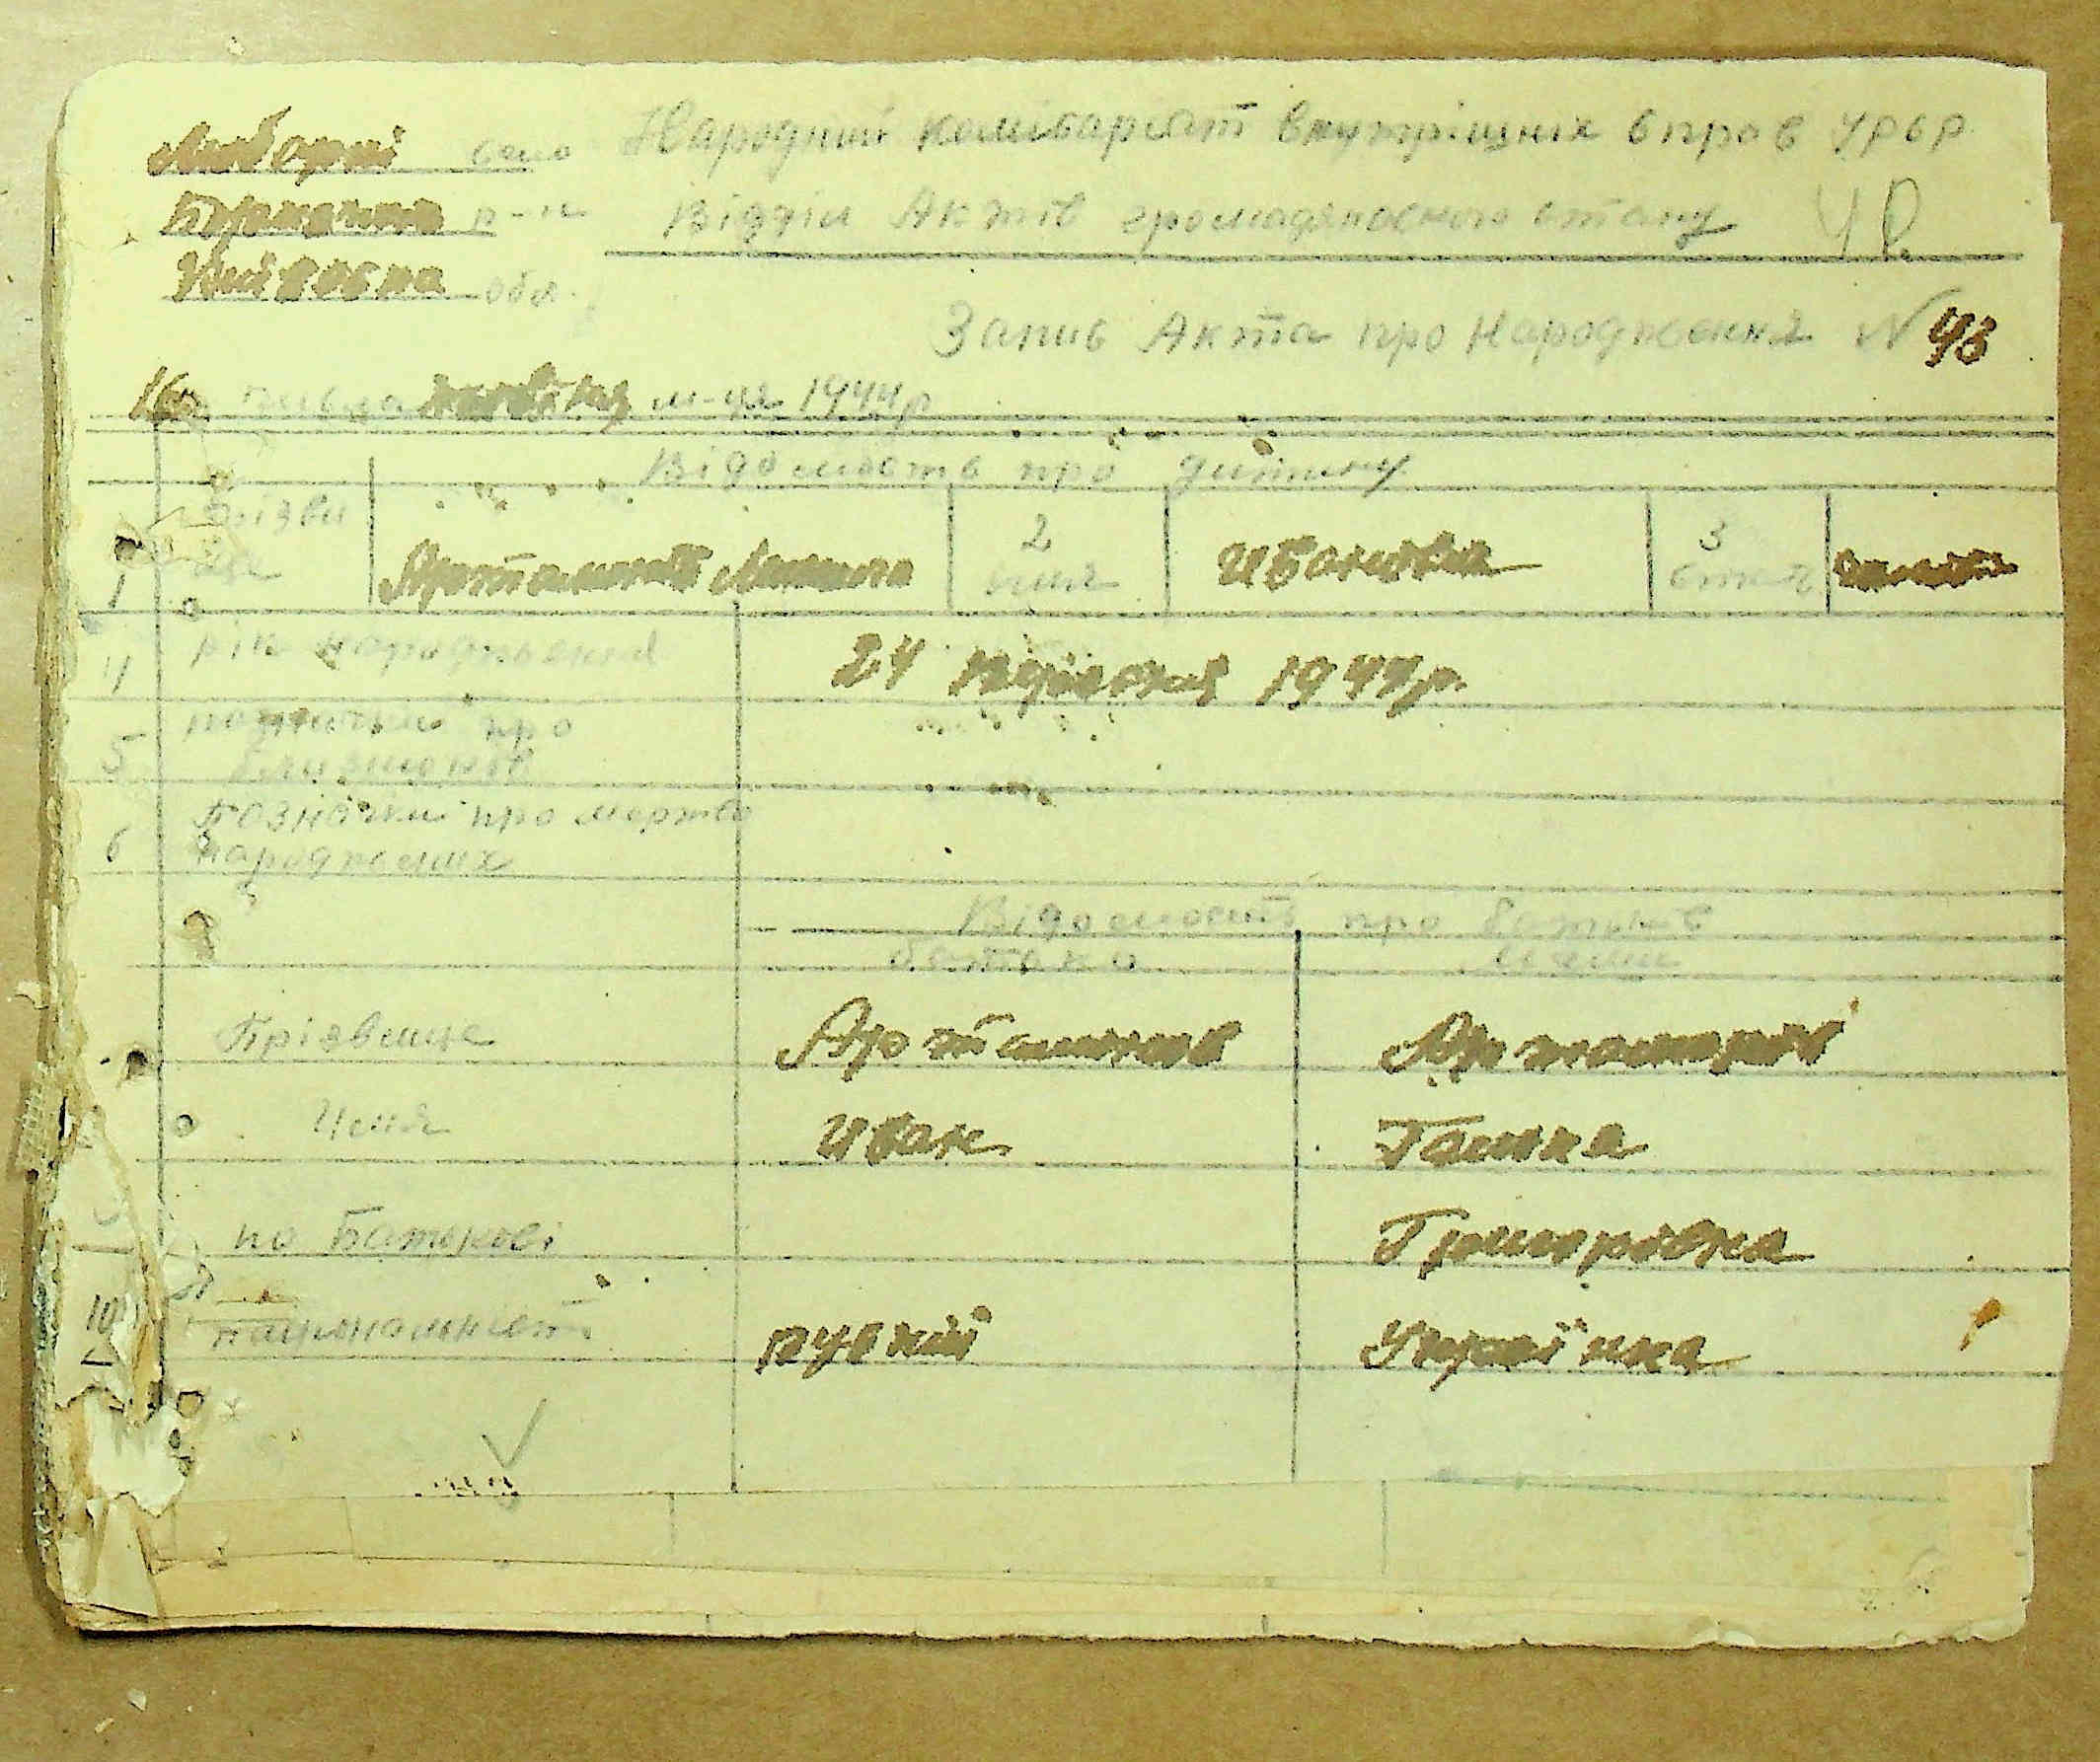 село Народний комісаріат внутрішніх справ УРСР
р-н Відділ Актів громадянського стану
Київська обл.
Запис Акта про народження N 43
16 жовтня м-ця 1944 р
Відомость про дитину
1 Прізвище 2 имя Ивановна 3 стать
4 рік народження 24 1944 р.
5 позначки про близнюків
6 Позначки про мертво народжених
Відомость про батьків
батько мати
Прізвище Артамонов
Имя Иван Ганна
по Батькові Григорівна
10 національність руский Українка